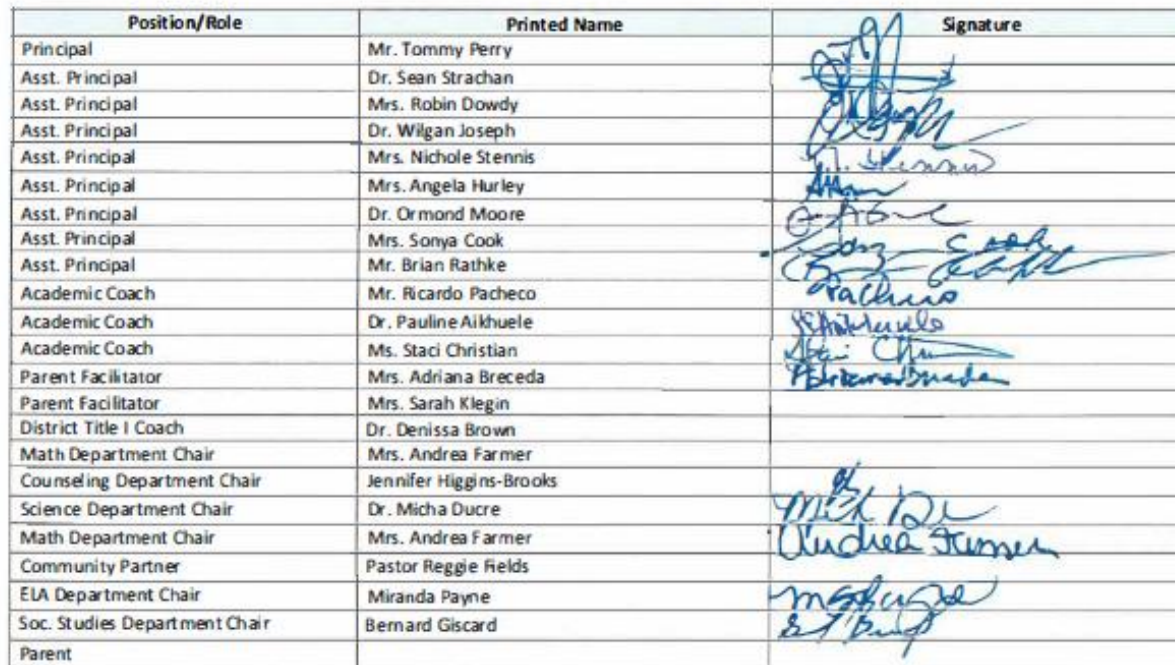 Position/Role Printed Name Signature
Principal Mr. Tommy Perry
Asst. Principal Dr. Sean Strachan
Asst. Principal Mrs. Robin Dowdy
Asst. Principal Dr. Wilgan Joseph
Asst. Principal Mrs. Nichole Stennis N. Stennis
Asst. Principal Mrs. Angela Hurley
Asst. Principal Dr. Ormond Moore
Asst. Principal Mrs. Sonya Cook Cook
Asst. Principal Mr. Brian Rathke
Academic Coach Mr. Ricardo Pacheco
Academic Coach Dr. Pauline Aikhuele
Academic Coach Ms. Staci Christian Staci
Parent Facilitator Mrs. Adriana Breceda
Parent Facilitator Mrs. Sarah Klegin
District Title I Coach Dr. Denissa Brown
Math Department Chair Mrs. Andrea Farmer
Counseling Department Chair Jennifer Higgins-Brooks
Science Department Chair Dr. Micha Ducre
Math Department Chair Mrs. Andrea Farmer Andrea Farmer
Community Partner Pastor Reggie Fields
ELA Department Chair Miranda Payne
Soc. Studies Department Chair Bernard Giscard
Parent